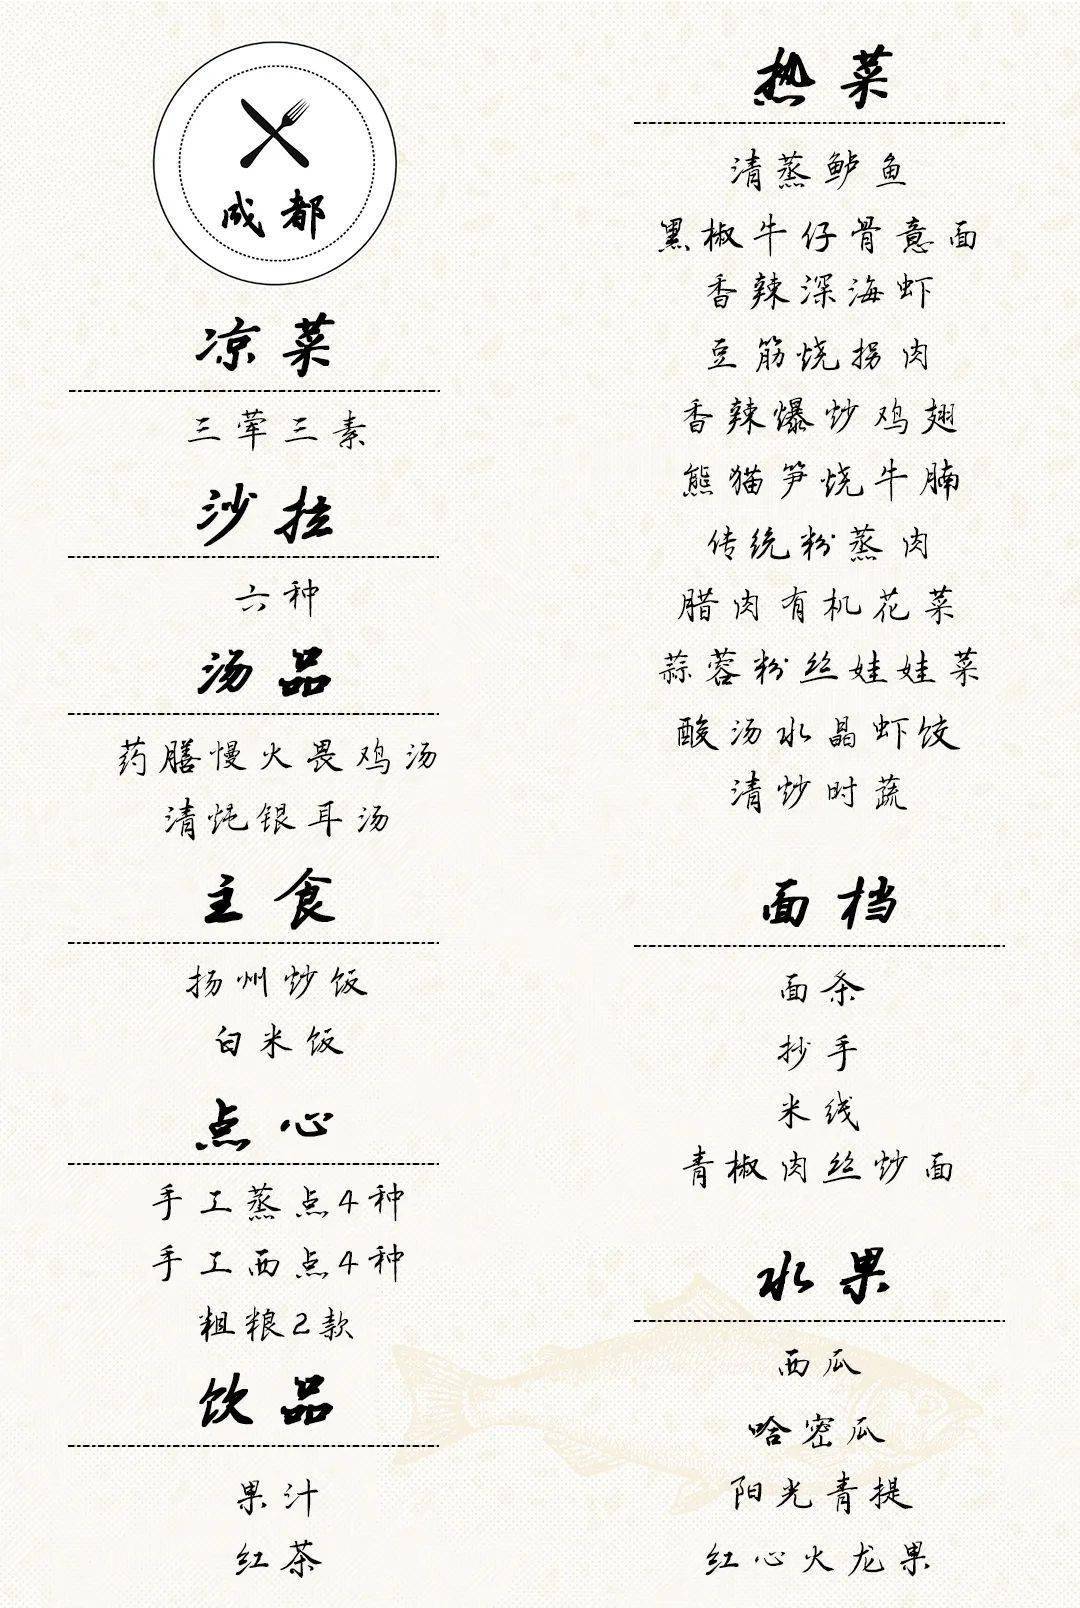 成都
凉菜
三荤三素
沙拉
六种
汤品
药膳慢火畏鸡汤
清炖银耳汤
主食
扬州炒饭
白米饭
点心
手工蒸点4种
手工西点4种
粗粮2款
饮品
果汁
红茶
热菜
清蒸鲈鱼
黑椒牛仔骨意面
香辣深海虾
豆筋烧拐肉
香辣爆炒鸡翅
熊猫笋烧牛腩
传统粉蒸肉
腊肉有机花菜
蒜蓉粉丝娃娃菜
酸汤水晶虾饺
清炒时蔬
面档
面条
抄手
米线
青椒肉丝炒面
水果
西瓜
哈密瓜
阳光青提
红心火龙果